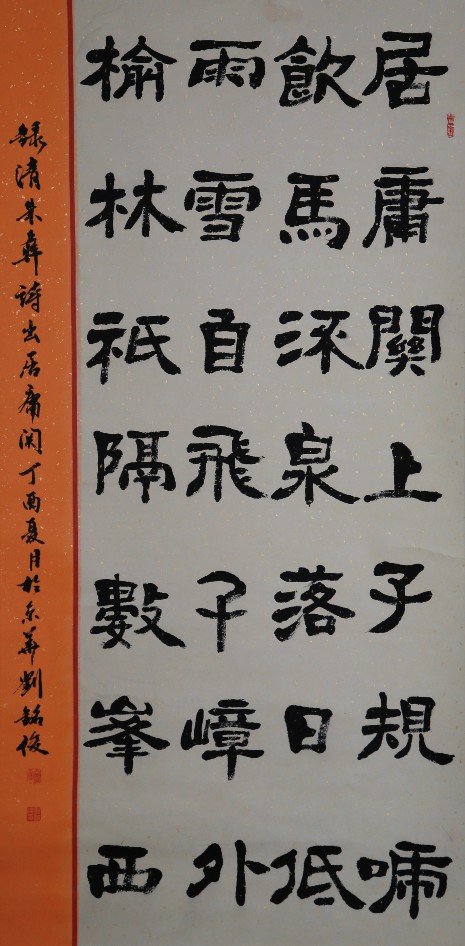 居庸關上子規啼
飲馬流泉落日低
雨雪自飛千嶂外
榆林祇隔數峯西
録清朱彝詩出居庸関丁酉夏月於京華劉銘俊